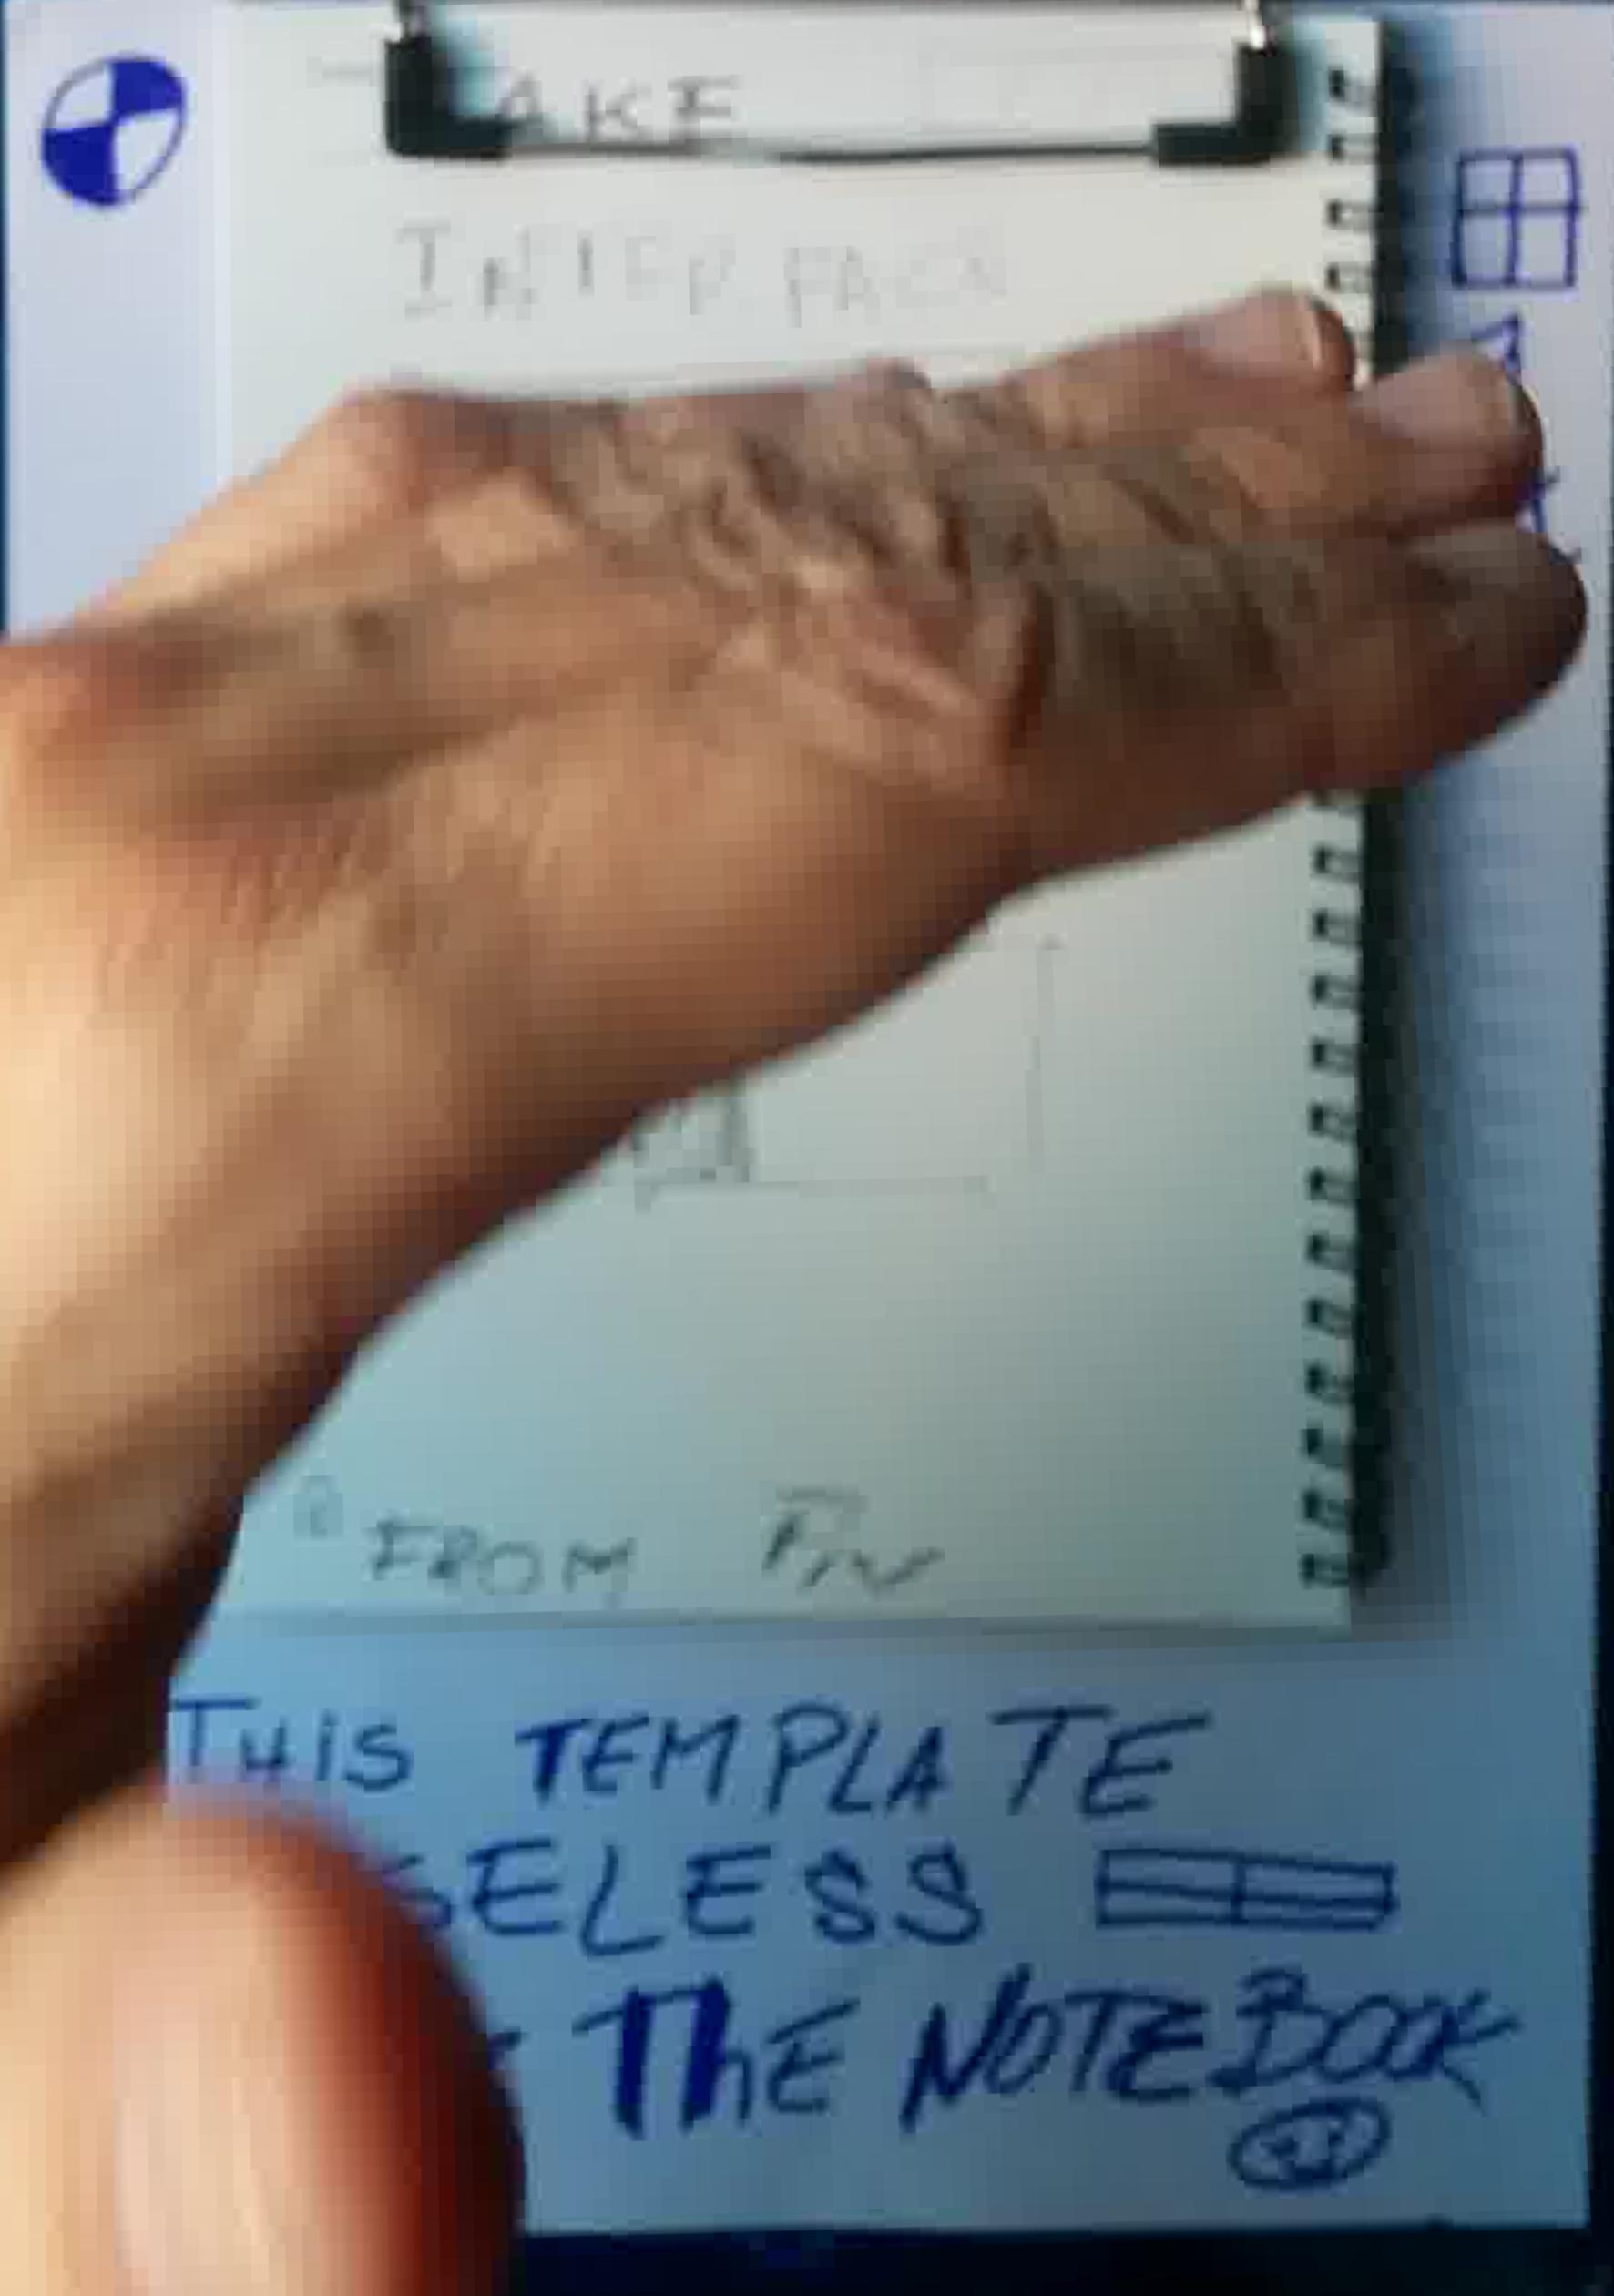 AKE
INTERFACE
FROM
THIS TEMPLATE
SELESS
THE NOTEBOOK